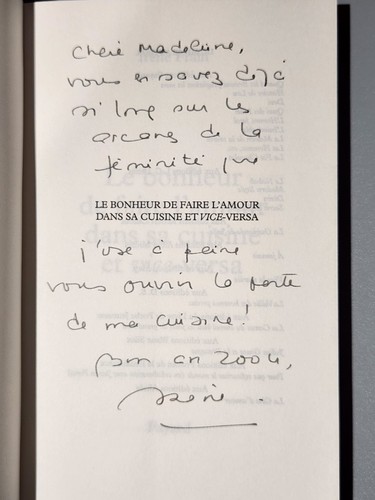 Chère Madeleine,
vous en savez déjà
si long sur les
arcanes de la
féminité que
LE BONHEUR DE FAIRE L'AMOUR
DANS SA CUISINE ET VICE-VERSA
j'ose à peine
vous ouvrir la porte
de ma cuisine!
bon an 2004,
Irène.